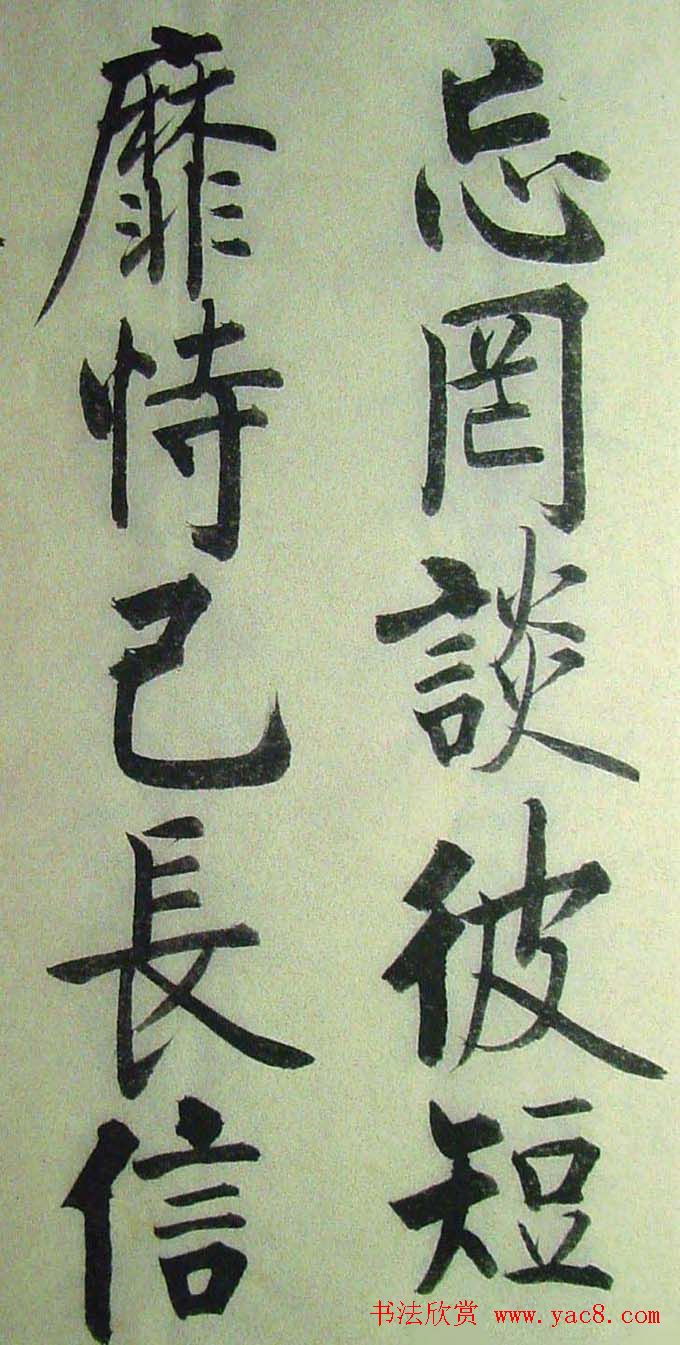 忘罔談彼短
靡恃己長信
书法欣赏 www.yac8.com